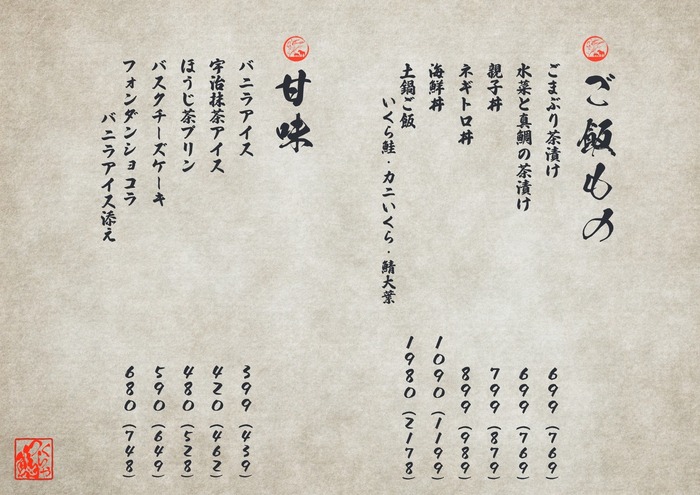 ご飯もの
ごまぶり茶漬け 699(769)
水菜と真鯛の茶漬け 699(769)
親子丼 799(879)
ネギトロ丼 899(989)
海鮮丼 1090(1199)
土鍋ご飯 1980(2178)
いくら鮭・カニいくら・鯖大葉
甘味
バニラアイス 399(439)
宇治抹茶アイス 420(462)
ほうじ茶プリン 480(528)
バスクチーズケーキ 590(649)
フォンダンショコラ 680(748)
バニラアイス添え